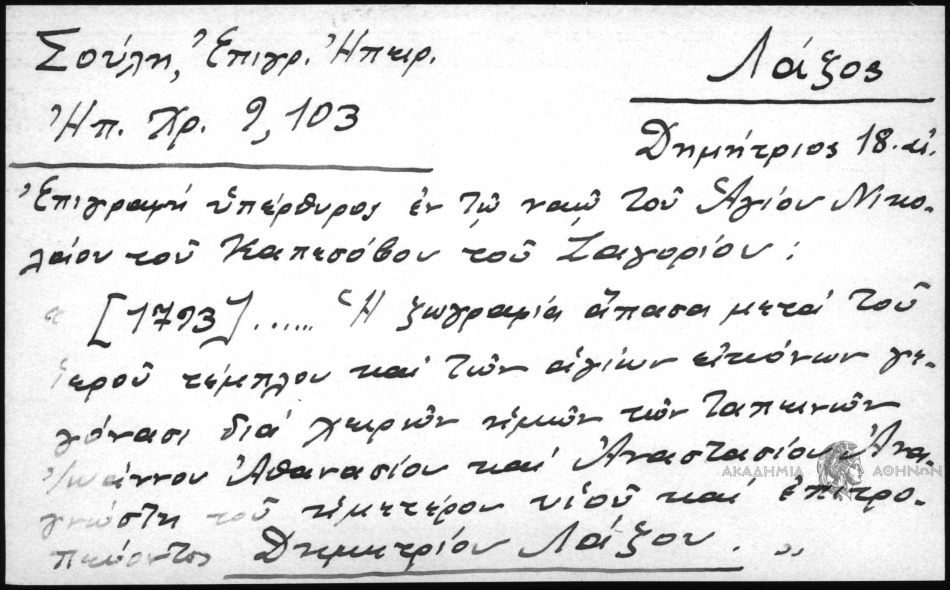 Σούλη, Ἐπιγρ. Ἠπειρ.
Ἠπ. Χρ. 9,103
Λάζος
Δημήτριος 18. αἰ.
Ἐπιγραφή ὑπέρθυρος ἐν τῷ ναῷ τοῦ Ἁγίου Νικο-
λάου τοῦ Καπεσόβου τοῦ Ζαγορίου :
« [1793]...... Ἡ ζωγραφιά ἅπασα μετά τοῦ
ἱεροῦ τέμπλου καί τῶν ἁγίων εἰκόνων γε-
γόνασι διά χειρῶν ἡμῶν τῶν ταπεινῶν
Ἰωάννου Ἀθανασίου καί Ἀναστασίου Ἀνα-
γνώστη τοῦ ἡμετέρου υἱοῦ καί ἐπιτρο-
πεύοντος Δημητρίου Λάζου. »
ΑΚΑΔΗΜΙΑ ΑΘΗΝΩΝ